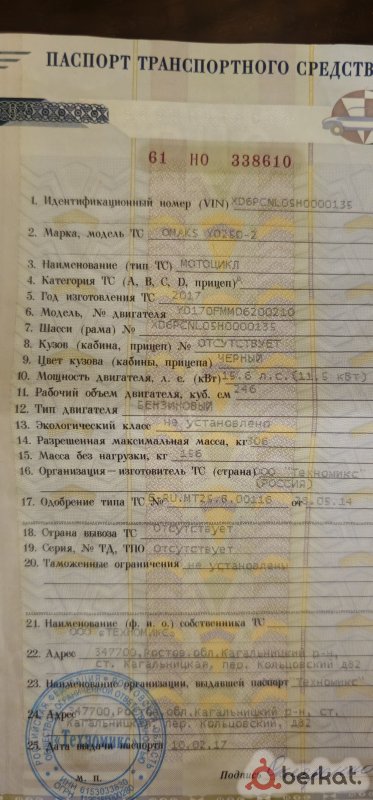 ПАСПОРТ ТРАНСПОРТНОГО СРЕДСТВ
61 НО 338610
1. Идентификационный номер (VIN) XD6PCNL05H0000135
2. Марка, модель ТС OMAKS YD250-2
3. Наименование (тип ТС) МОТОЦИКЛ
4. Категория ТС (A, B, C, D, прицеп) А
5. Год изготовления ТС 2017
6. Модель, № двигателя YD170FMMD6200210
7. Шасси (рама) № XD6PCNL05H0000135
8. Кузов (кабина, прицеп) № ОТСУТСТВУЕТ
9. Цвет кузова (кабины, прицепа) ЧЕРНЫЙ
10. Мощность двигателя, л. с. (кВт) 15.6 л.с.(11.5 кВт)
11. Рабочий объем двигателя, куб. см 246
12. Тип двигателя БЕНЗИНОВЫЙ
13. Экологический класс не установлено
14. Разрешенная максимальная масса, кг 306
15. Масса без нагрузки, кг 156
16. Организация—изготовитель ТС (страна) ООО "Техномикс"
(РОССИЯ)
17. Одобрение типа ТС № RU.МТ25.Б.00116 от .05.14
18. Страна вывоза ТС Отсутствует
19. Серия, № ТД, ТПО Отсутствует
20. Таможенные ограничения не установлены
21. Наименование (ф. и. о.) собственника ТС
ООО "ТЕХНОМИКС"
22. Адрес 347700,Ростов.обл.Кагальницкий р-н,
ст. Кагальницкая, пер. Кольцовский, д82
23. Наименование организации, выдавшей паспорт "Техномикс"
24. Адрес 347700,Ростов.обл.Кагальницкий р-н, ст.
Кагальницкая,пер. Кольцовский, д82
25. Дата выдачи паспорта 10.02.17
Техномикс
м. п.
Подпис
berkat.